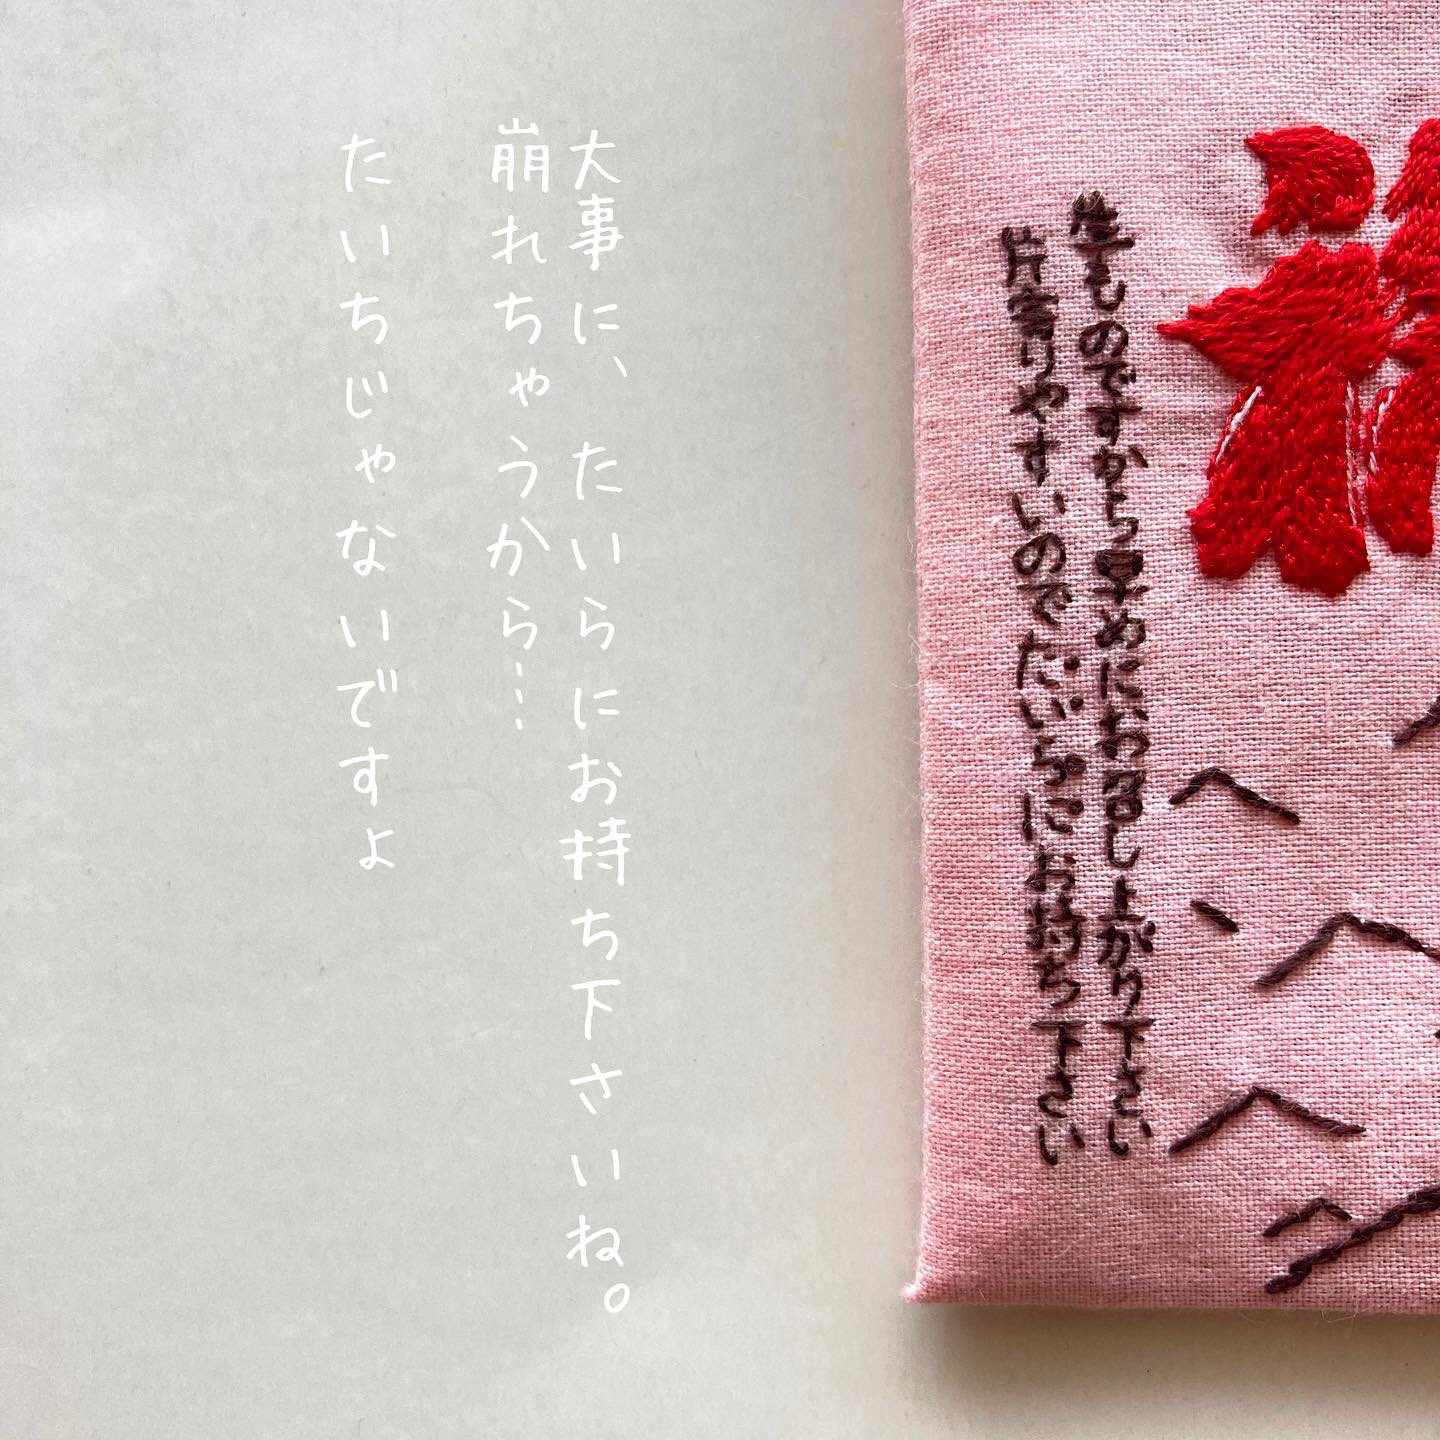 生ものですから早めにお召し上がり下さい
片寄りやすいのでたいらにお持ち下さい
大事に、たいらにお持ち下さいね。
崩れちゃうから…
たいちじゃないですよ